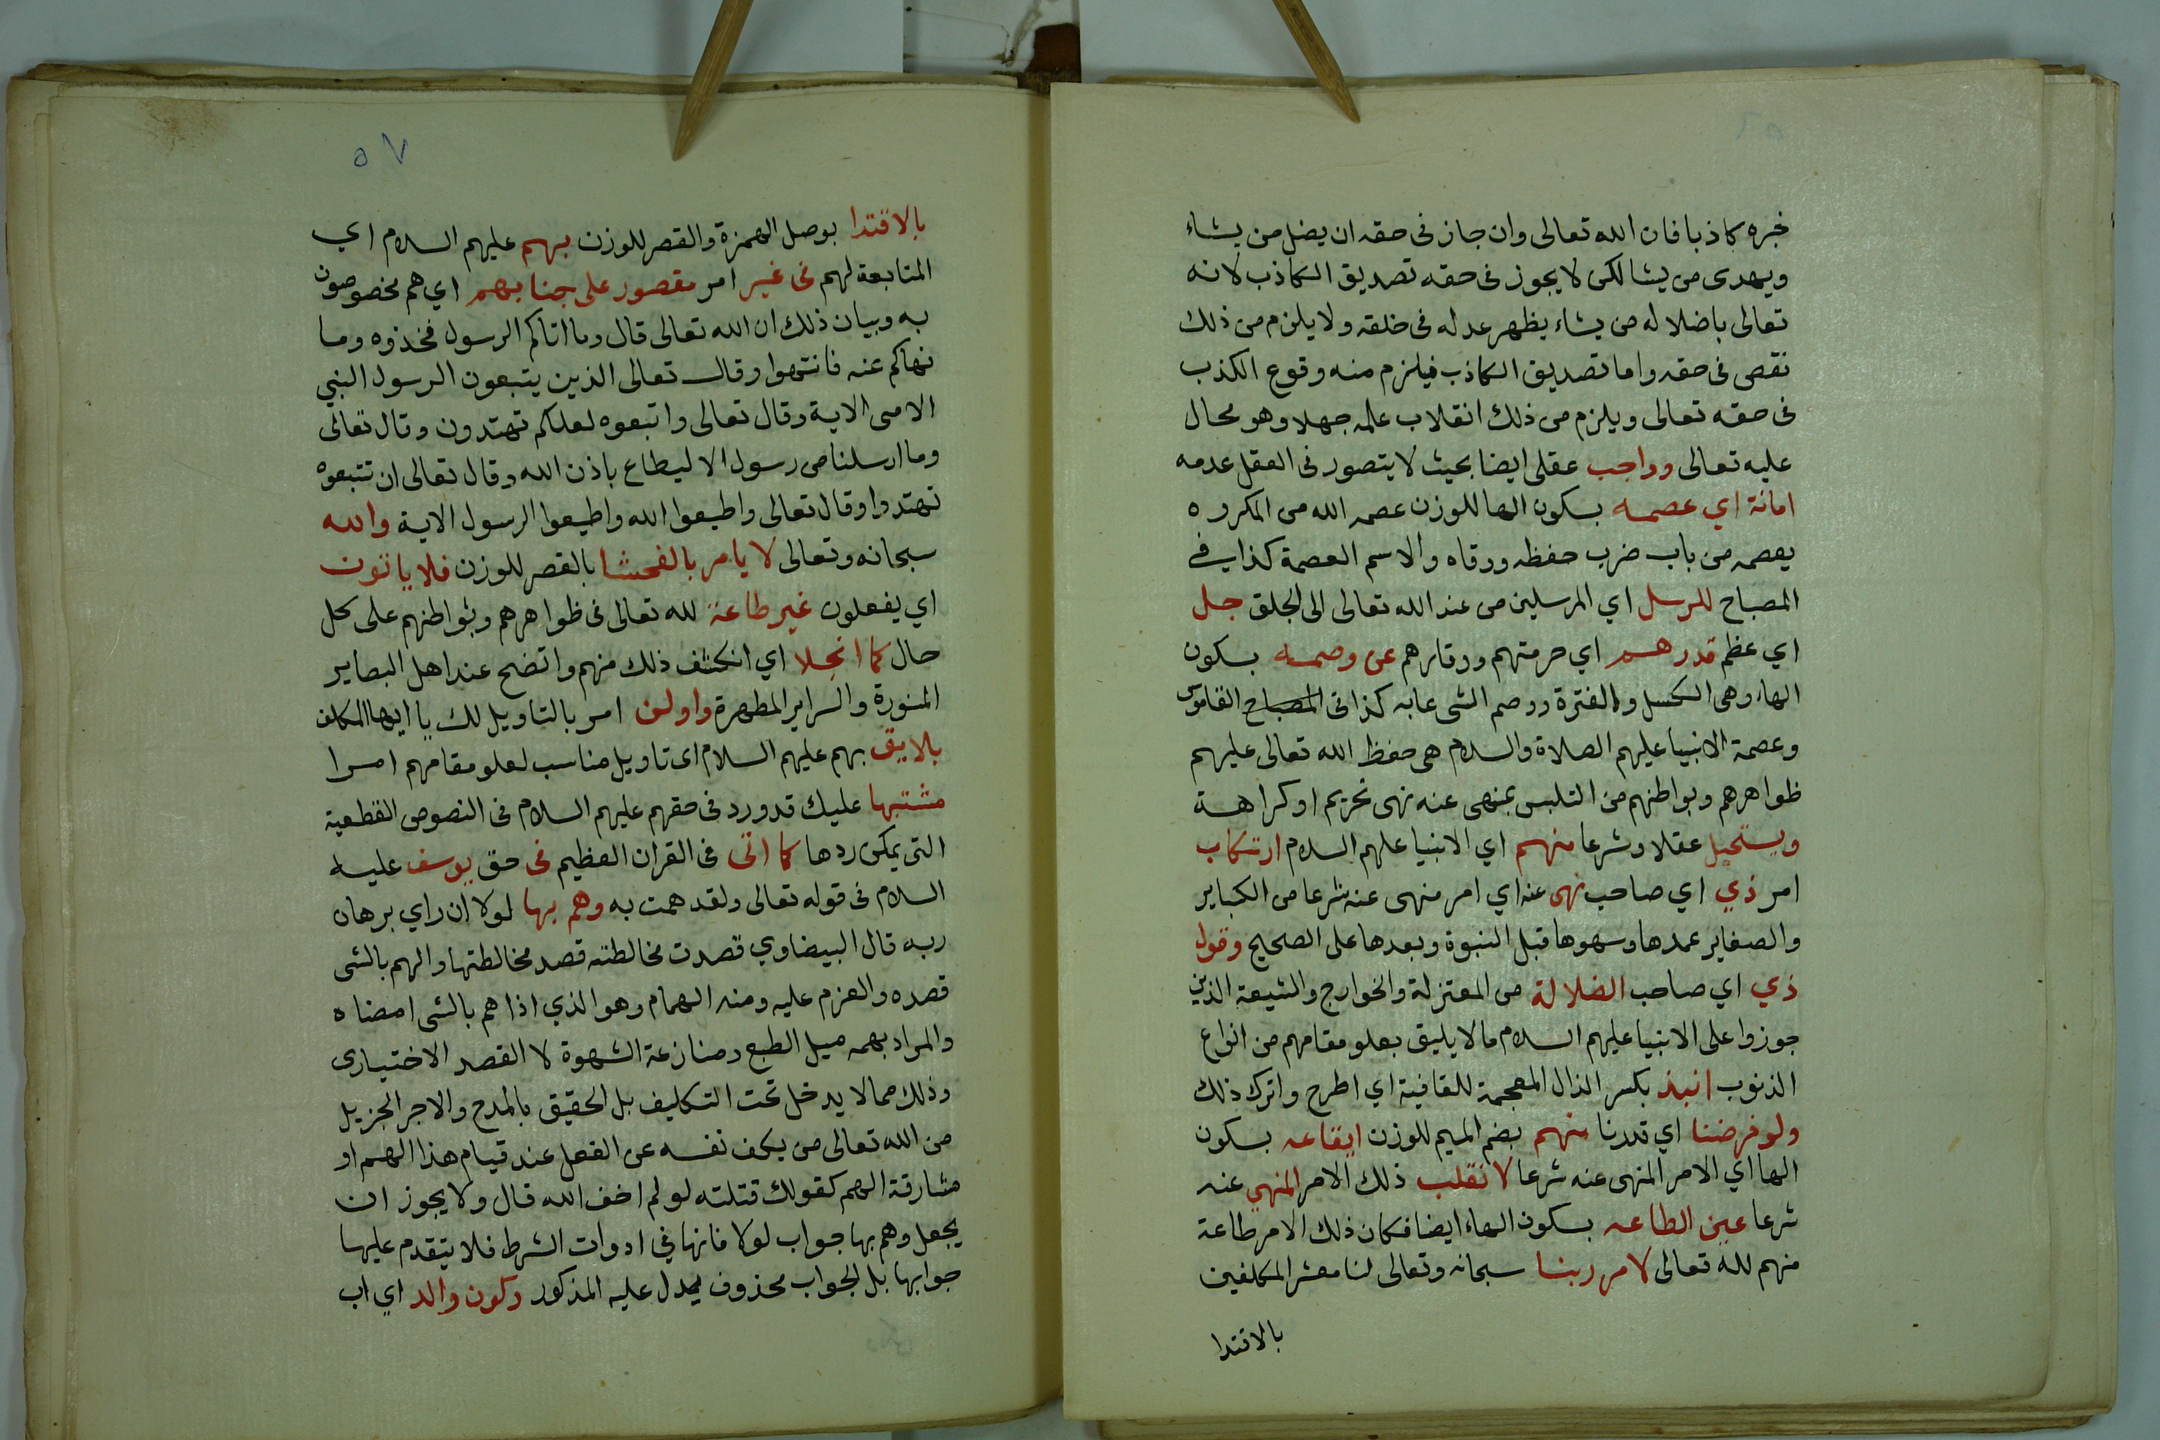 خبره كاذبا فان الله تعالى وان جاز فى حقه ان يضل من يشاء
ويهدى من يشا لكن لا يجوز فى حقه تصديق الكاذب لانه
تعالى باضلاله من يشاء يظهر عدله فى خلقه ولا يلزم من ذلك
نقص فى حقه واما تصديق الكاذب فيلزم منه وقوع الكذب
فى حقه تعالى ويلزم من ذلك انقلاب علمه جهلا وهو محال
عليه تعالى وواجب عقلى ايضا بحيث لا يتصور فى العقل عدمه
امانة اي عصمه بسكون الها للوزن عصمه الله من المكروه
يعصمه من باب ضرب حفظه ووقاه والاسم العصمة كذا في
المصباح للرسل اي المرسلين من عند الله تعالى الى الخلق جل
اي عظم قدرهم اي حرمتهم ووقارهم عن وصمه بسكون
الهاء وهى الكسل والفترة ووصم الشى عابه كذا فى المصباح القاموس
وعصمة الانبيا عليهم الصلاة والسلام هى حفظ الله تعالى عليهم
ظواهرهم وبواطنهم من التلبس بمنهى عنه نهى تحريم او كراهة
ويستحيل عقلا وشرعا منهم اي الانبيا عليهم السلام ارتكاب
امر ذي اي صاحب نهى عنه اي امر منهى عنه شرعا من الكباير
والصغاير عمدها وسهوها قبل النبوة وبعدها على الصحيح وقول
ذي اي صاحب الضلالة من المعتزلة والخوارج والشيعة الذين
جوزوا على الانبيا عليهم السلام ما لا يليق بعلو مقامهم من انواع
الذنوب انبذ بكسر الذال المعجمة للقافية اي اطرح واترك ذلك
ولو فرضنا اي قدرنا منهم بضم الميم للوزن ايقاعه بسكون
الها اي الامر المنهى عنه شرعا لا نقلب ذلك الامر المنهي عنه
شرعا عين الطاعه بسكون الهاء ايضا فكان ذلك الامر طاعة
منهم لله تعالى لامر ربنا سبحانه وتعالى لنا معشر المكلفين
بالاقتدا
٥٧
بالاقتدا بوصل الهمزة والقصر للوزن بهم عليهم السلام اي
المتابعة لهم فى غير امر مقصور على جنابهم اي هم مخصوصون
به وبيان ذلك ان الله تعالى قال وما اتاكم الرسول فخذوه وما
نهاكم عنه فانتهوا وقال تعالى الذين يتبعون الرسول النبي
الامى الاية وقال تعالى واتبعوه لعلكم تهتدون وقال تعالى
وما ارسلنا من رسول الا ليطاع باذن الله وقال تعالى ان تتبعوه
تهتدوا وقال تعالى واطيعوا الله واطيعوا الرسول الاية والله
سبحانه وتعالى لا يامر بالفحشا بالقصر للوزن فلا ياتون
اي يفعلون غير طاعة لله تعالى فى ظواهرهم وبواطنهم على كل
حال كما انجلا اي انكشف ذلك منهم واتضح عند اهل البصاير
المنورة والسراير المطهرة واولن امر بالتاويل لك يا ايها المكلف
بلايق بهم عليهم السلام اى تاويل مناسب لعلو مقامهم امرا
مشتبها عليك قد ورد فى حقهم عليهم السلام فى النصوص القطعية
التى يمكن ردها كما اتى فى القران العظيم فى حق يوسف عليه
السلام فى قوله تعالى ولقد همت به وهم بها لولا ان راي برهان
ربه قال البيضاوي قصدت مخالطته قصد مخالطتها والهم بالشى
قصده والعزم عليه ومنه الهمام وهو الذي اذا هم بالشى امضاه
والمراد بهمه ميل الطبع ومنازعة الشهوة لا القصد الاختيارى
وذلك مما لا يدخل تحت التكليف بل الحقيق بالمدح والاجر الجزيل
من الله تعالى من يكف نفسه عن الفعل عند قيام هذا الهم او
مشارفة الهم كقولك قتلته لو لم اخف الله قال ولا يجوز ان
يجعل وهم بها جواب لولا فانها في ادوات الشرط فلا يتقدم عليها
جوابها بل الجواب محذوف يدل عليه المذكور وكون والد اي اب